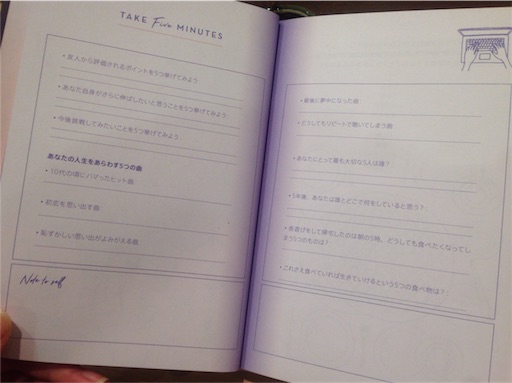 TAKE Five MINUTES
・友人から評価されるポイントを5つ挙げてみよう
・あなた自身がさらに伸ばしたいと思うことを5つ挙げてみよう
・今後挑戦してみたいことを5つ挙げてみよう
あなたの人生をあらわす5つの曲
・10代の頃にハマったヒット曲
・初恋を思い出す曲
・恥ずかしい思い出がよみがえる曲
Note to self
・最後に夢中になった曲
・どうしてもリピートで聴いてしまう曲
・あなたにとって最も大切な5人は誰?
・5年後、あなたは誰とどこで何をしていると思う?
・夜遊びをして帰宅したのは朝の5時、どうしても食べたくなってし
まう5つのものは?
・これさえ食べていれば生きていけるという5つの食べ物は?